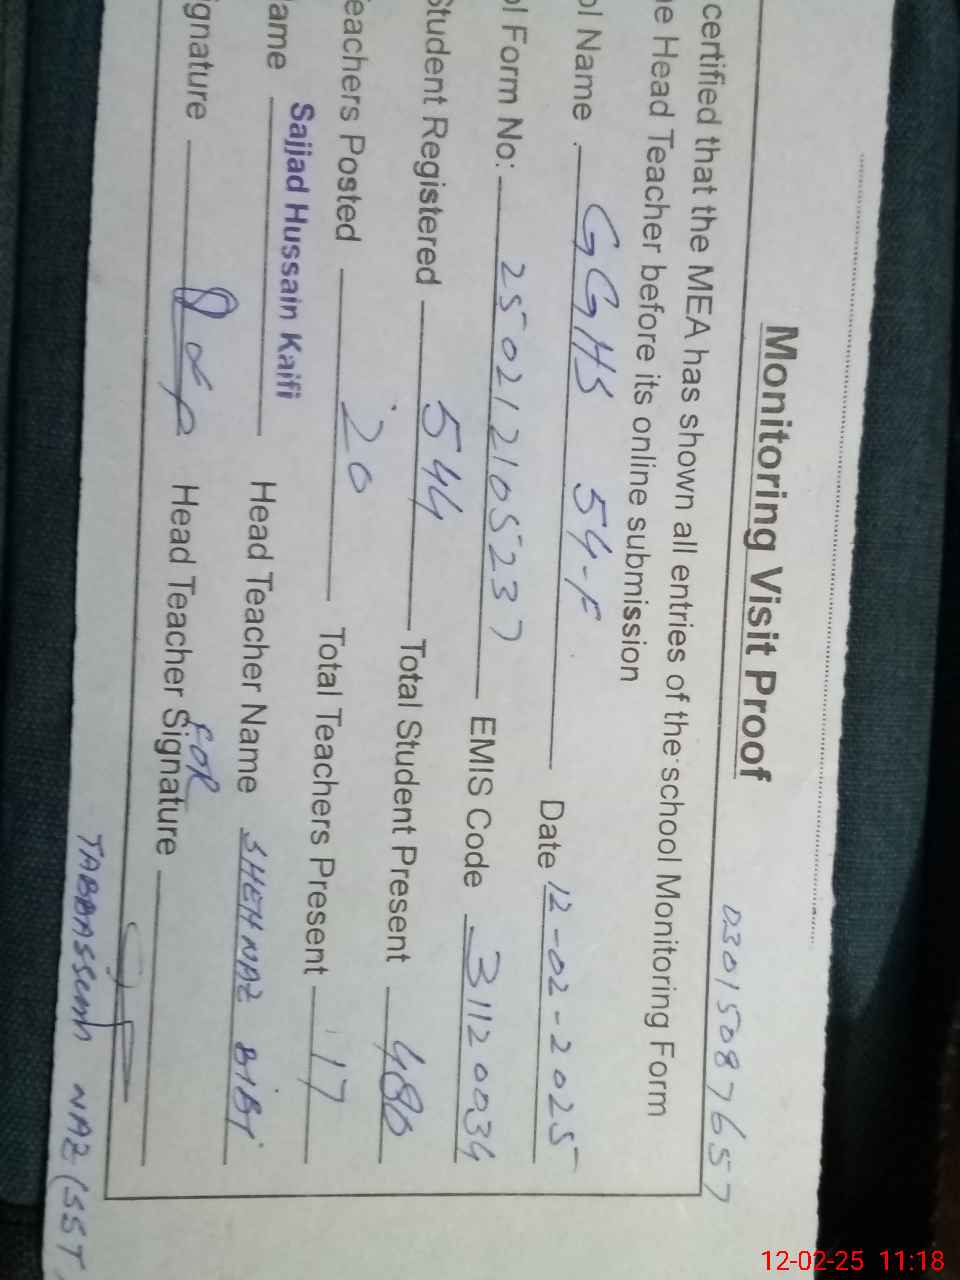 Monitoring Visit Proof
03015087657
certified that the MEA has shown all entries of the school Monitoring Form
e Head Teacher before its online submission
ol Name GGHS 54-F Date 12-02-2025
ol Form No: 250212105237 EMIS Code 31120034
Student Registered 544 Total Student Present 480
eachers Posted 20 Total Teachers Present 17
ame Sajjad Hussain Kaifi Head Teacher Name SHEHNAZ BIBI
ignature Head Teacher Signature
FOR
TABBASSUM NAZ (SST
12-02-25 11:18